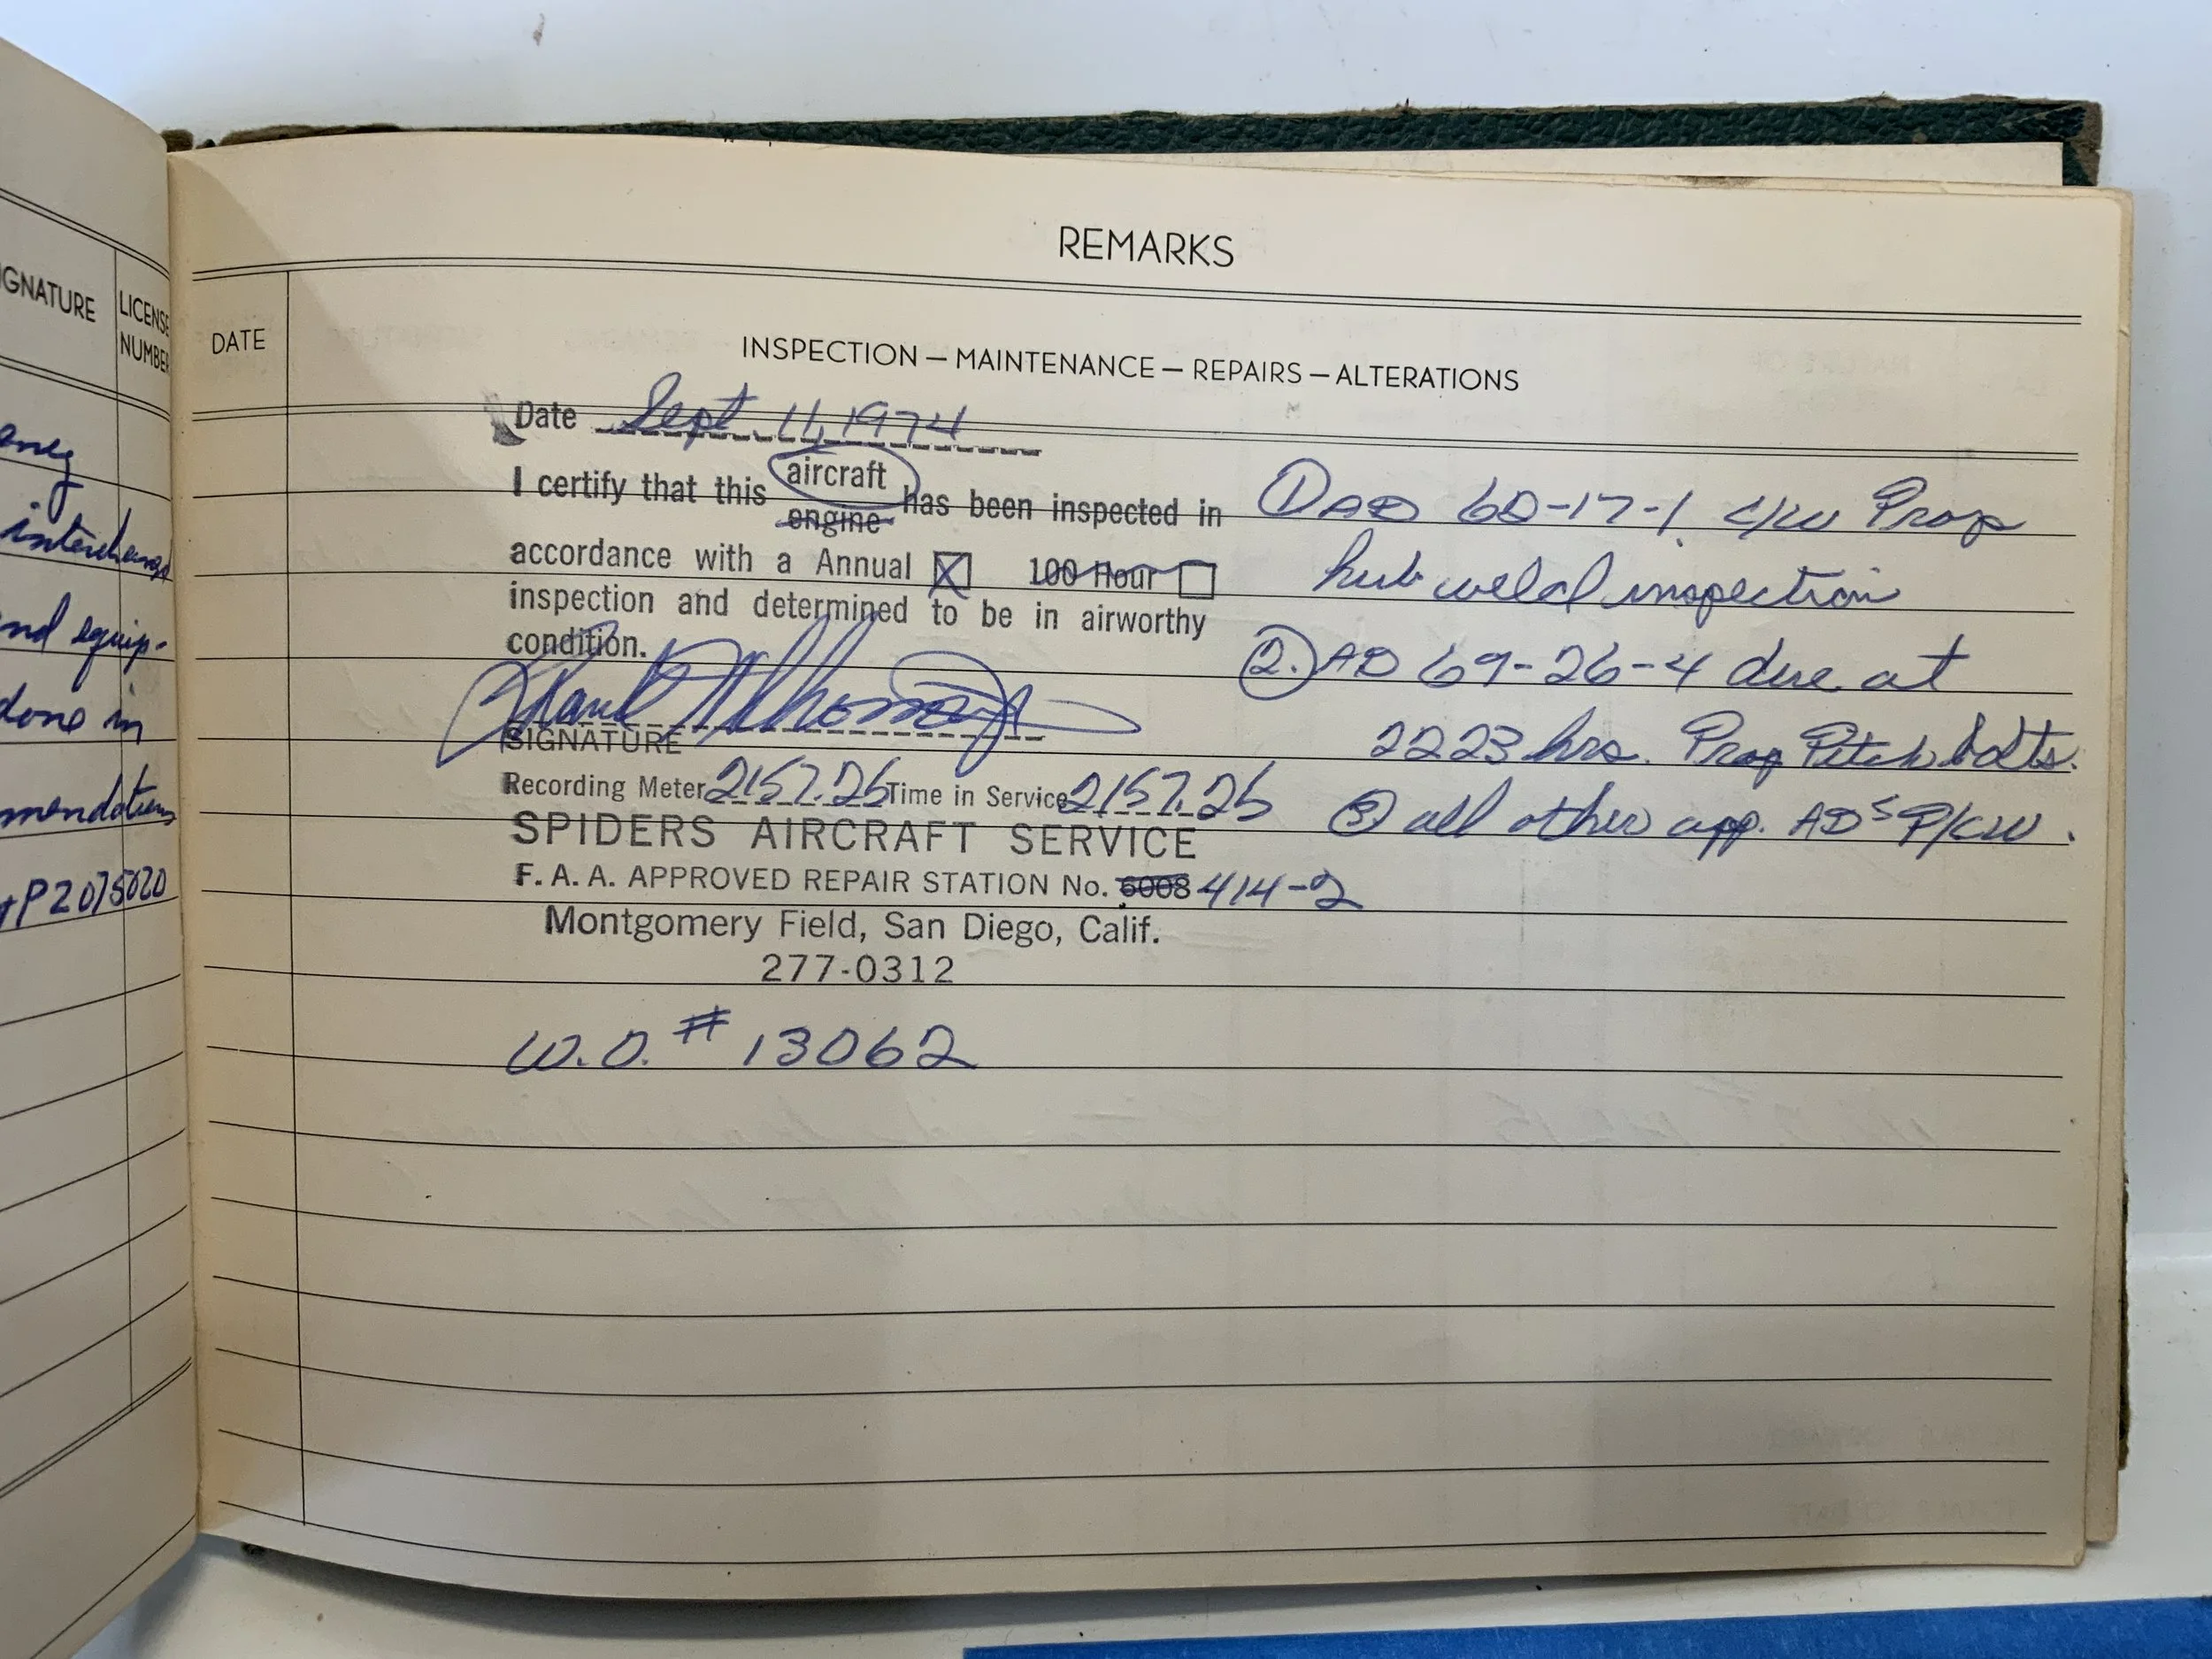 IGNATURE
LICENSE
NUMBER
interchange
nd equip-
done in
mendations
P2075020
REMARKS
DATE
INSPECTION — MAINTENANCE — REPAIRS — ALTERATIONS
Date Sept 11, 1974
I certify that this aircraft engine has been inspected in
accordance with a Annual ☒ 100 Hour ☐
inspection and determined to be in airworthy
condition.
SIGNATURE
Recording Meter 2157.26 Time in Service 2157.26
SPIDERS AIRCRAFT SERVICE
F. A. A. APPROVED REPAIR STATION No. 6008 414-2
Montgomery Field, San Diego, Calif.
277-0312
W.O. # 13062
① AD 60-17-1 c/w Prop
hub weld inspection
②. AD 69-26-4 due at
2223 hrs. Prop Pitch bolts.
③ all other app. ADS P/CW.